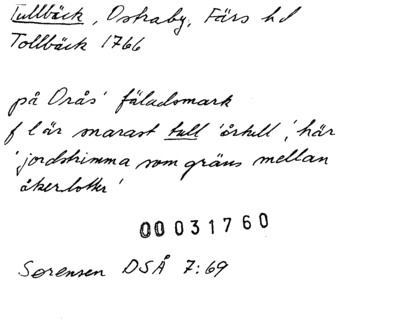 Tullbäck, Ostraby, Färs hd
Tollbäck 1766
på Orås' fäladsmark
f l är snarast tull 'årtull', här
'jordstrimma som gräns mellan
åkerlotter'
00031760
Sørensen DSÅ 7:69